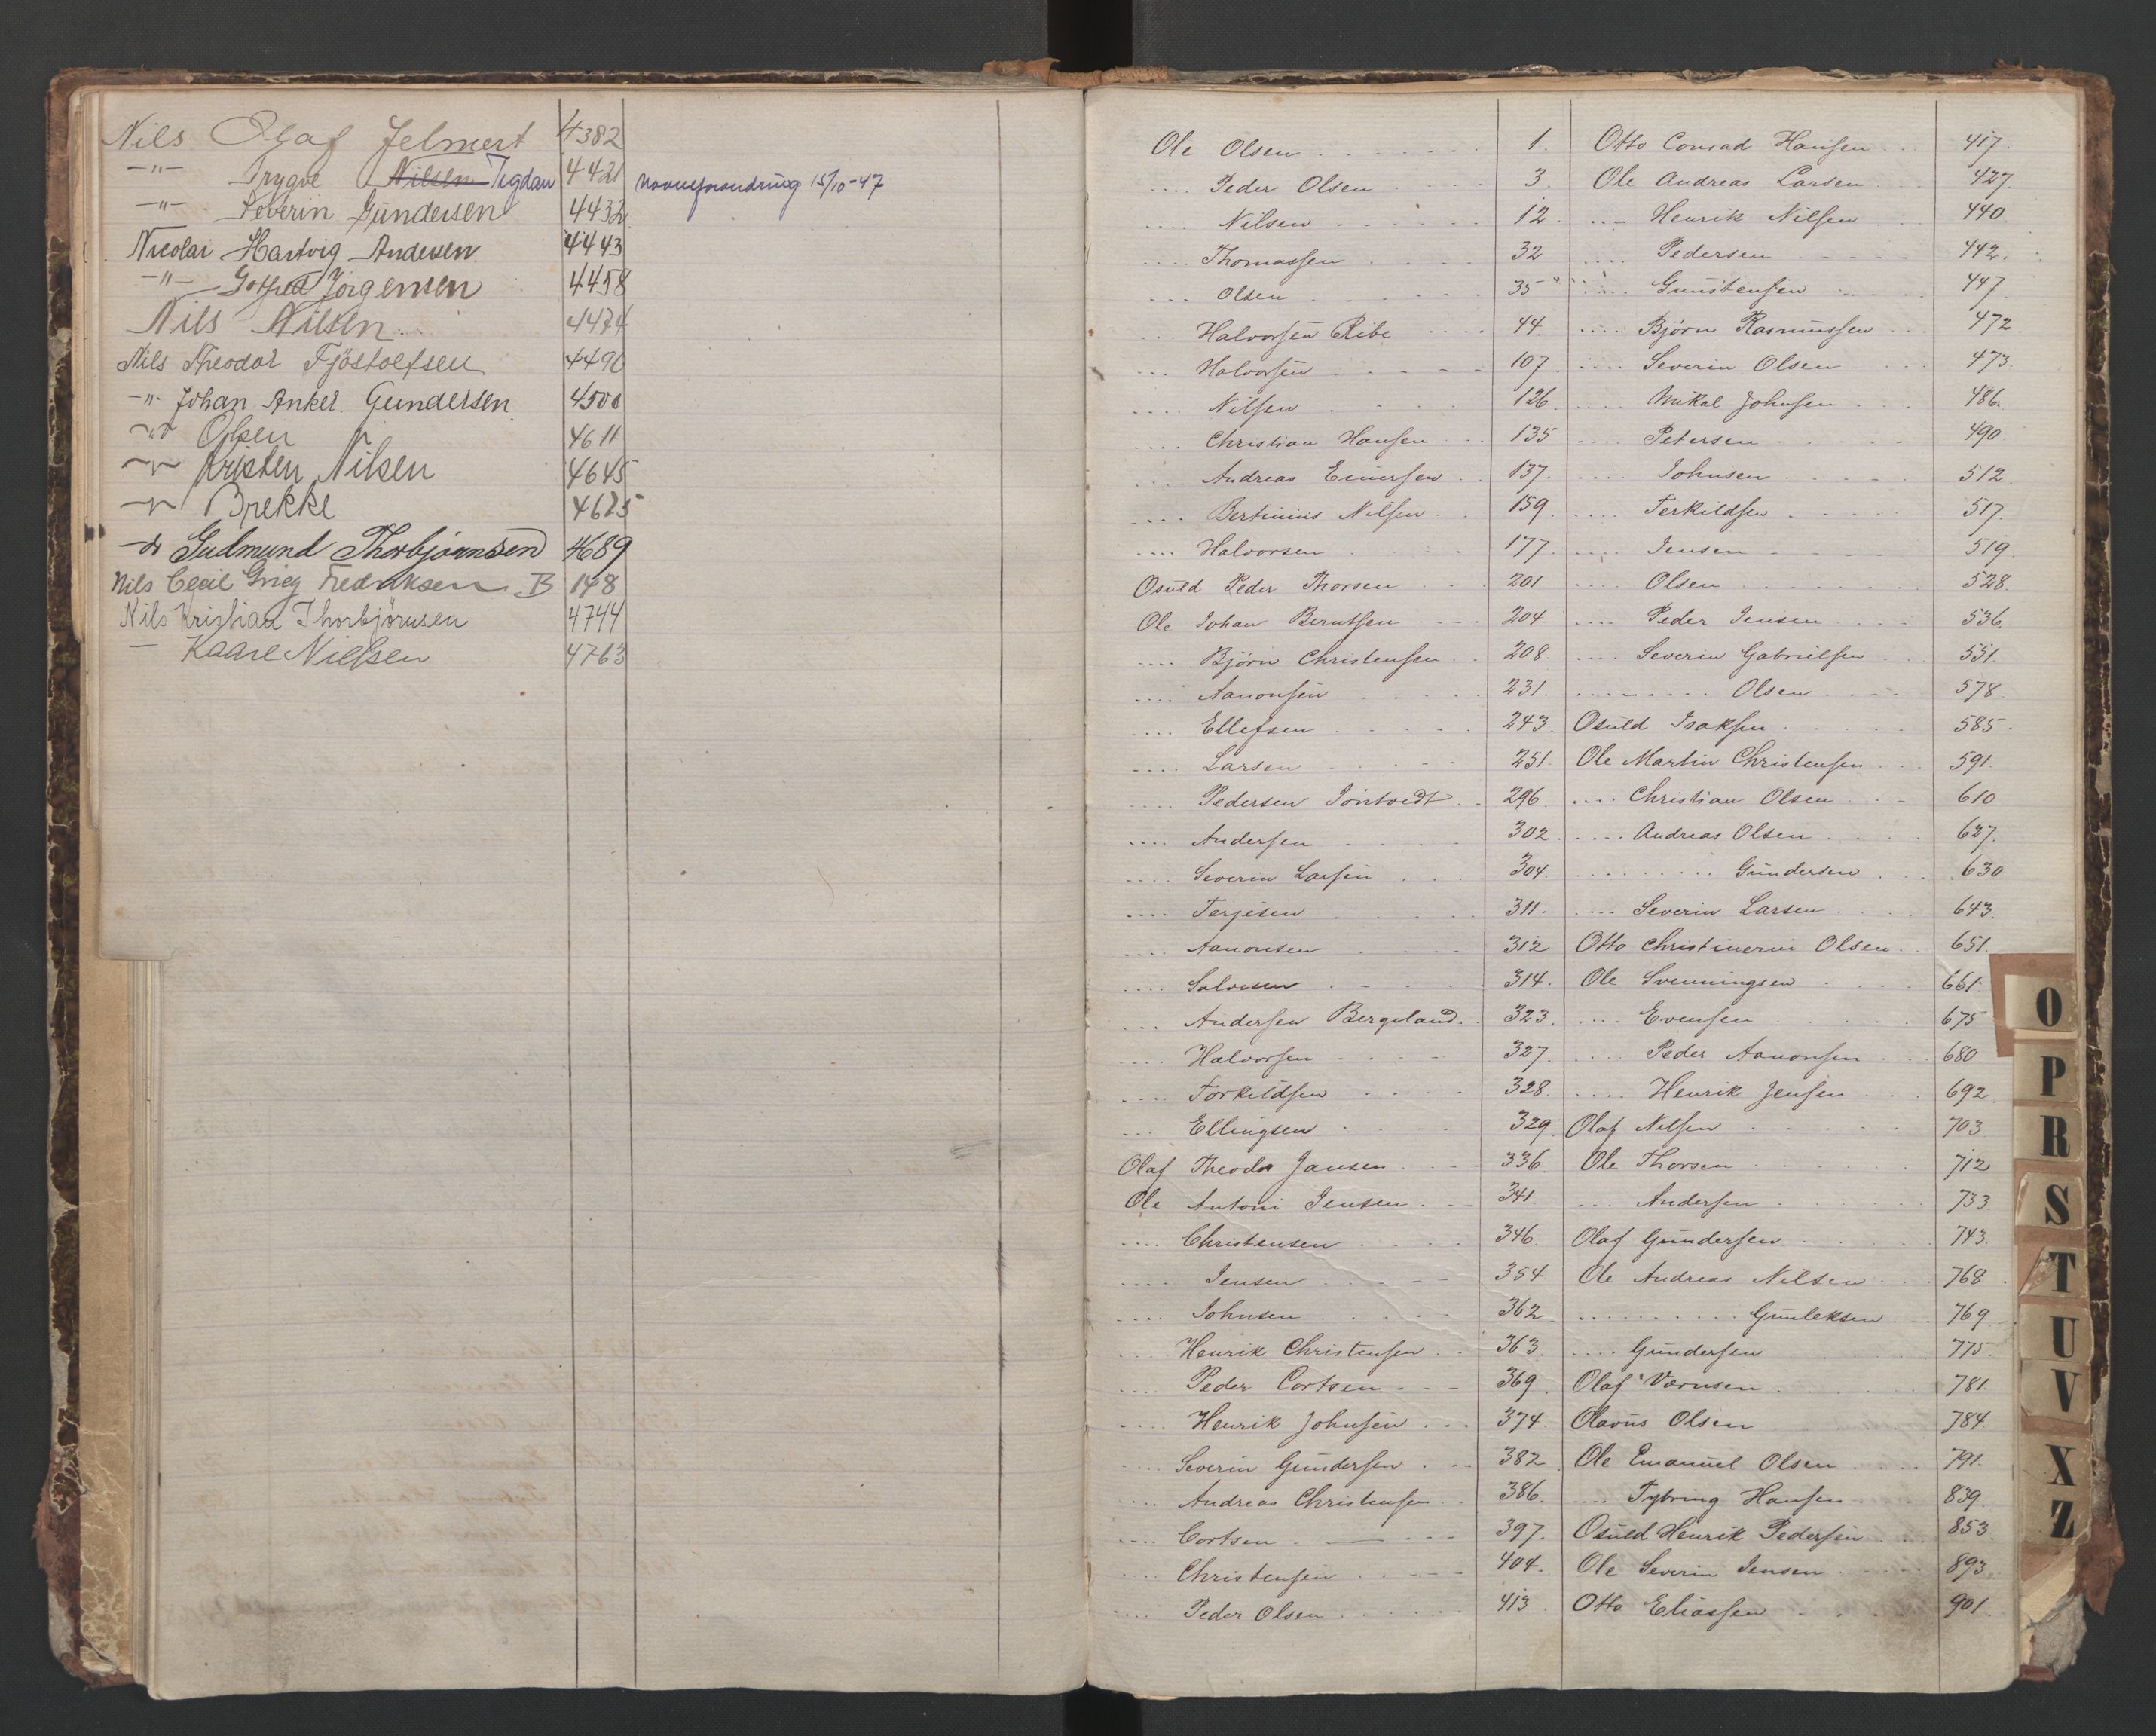 Nils Olaf Jelmert 4382
-"- Trygve Nilsen Tegdan 4421 Navneforandring 15/10-47
-"- Severin Gundersen 4432
Nicolai Hartvig Andersen 4443
-"- Gotfred Jörgensen 4458
Nils Nilsen 4474
Nils Theodor Fjöstolfsen 4490
-"- Johan Anker Gundersen 4500
-"- Olsen 4611
-"- Kristen Nilsen 4645
-"- Brekke 4625
-"- Gudmund Thorbjørnsen 4689
Nils Cecil Grieg Fredriksen B 148
Nils Kristian Thorbjörnsen 4744
— Kaare Nielsen 4763
Ole Olsen 1.
.... Peder Olsen 3.
.... Nilsen 12.
.... Thomassen 32
.... Olsen 35
.... Halvorsen Ribe 44.
.... Halvorsen 107.
.... Nilsen 126.
.... Christian Hansen 135
.... Andreas Einersen 137.
.... Bertinius Nilsen 159.
.... Halvorsen 177.
Osuld Peder Thorsen 201
Ole Johan Berntsen 204
.... Björn Christensen 208
.... Aanonsen 231.
.... Ellefsen 243.
.... Larsen 251
.... Pedersen Jöntvedt 296.
.... Andersen 302
.... Severin Larsen 304.
.... Terjesen 311.
.... Aanonsen 312
.... Salvesen 314.
.... Andersen Bergeland 323.
.... Halvorsen 327.
.... Torkildsen 328.
.... Ellingsen 329.
Olaf Theodor Jansen 336.
Ole Antoni Jensen 341
.... Christensen 346.
.... Jensen 354
.... Johnsen 362
.... Henrik Christensen 363.
.... Peder Cortsen 369.
.... Henrik Johnsen 374.
.... Severin Gundersen 382
.... Andreas Christensen 386.
.... Cortsen 397.
.... Christensen 404.
.... Peder Olsen 413.
Otto Conrad Hansen 417.
Ole Andreas Larsen 427.
.... Henrik Nilsen 440
.... Pedersen 442.
.... Gunstensen 447
.... Björn Rasmussen 472.
.... Severin Olsen 473.
.... Mikal Johnsen 486.
.... Petersen 490
.... Johnsen 512.
.... Terkildsen 517.
.... Jensen 519
.... Olsen 528.
.... Peder Jensen 536.
.... Severin Gabrielsen 551.
........ Olsen 578
Osuld Isaksen 585.
Ole Martin Christensen 591.
.... Christian Olsen 610
.... Andreas Olsen 627.
........ Gundersen 630
.... Severin Larsen 643.
Otto Christinerius Olsen 651.
Ole Svenningsen 661.
.... Evensen 675
.... Peder Aanonsen 680
.... Henrik Jensen 692.
Olaf Nilsen 703
Ole Thorsen 712
.... Andersen 733.
Olaf Gundersen 743.
Ole Andreas Nilsen 768
........ Gunleksen 769
.... Gundersen 775.
Olaf Værnsen 781.
Olavus Olsen 784.
Ole Emanuel Olsen 791.
.... Tybring Hansen 839
Osuld Henrik Pedersen 853.
Ole Severin Jensen 893.
Otto Eliassen 901
O
P
R
S
T
U
V
X
Z